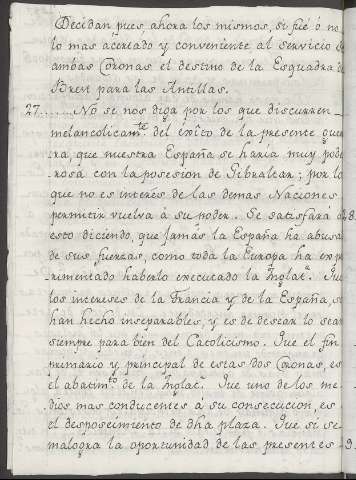 Decidan pues ahora los mismos, si fué ó no
lo mas acertado y conveniente al servicio de
ambas Coronas el destino de la Esquadra de
Brest para las Antillas.
27....... No se nos diga por los que discurren
melancolicam.te del éxito de la presente gue
rra, que nuestra España se haría muy pode
rosa con la posesion de Gibraltar; por lo
que no es interés de las demas Naciones
permitir vuelva á su poder. Se satisfará á
esto diciendo, que jamás la España ha abusa
de sus fuerzas, como toda la Europa ha expe
rimentado haberlo executado la Inglat.a Que
los intereses de la Francia y de la España, se
han hecho inseparables, y es de desear lo sean
siempre para bien del Catolicismo. Que el fin
primario y principal de estas dos Coronas, es
el abatim.to de la Inglat.a Que uno de los me
dios mas conducentes á su consecucion, es
el desposeimiento de dha plaza. Que si se
malogra la oportunidad de las presentes